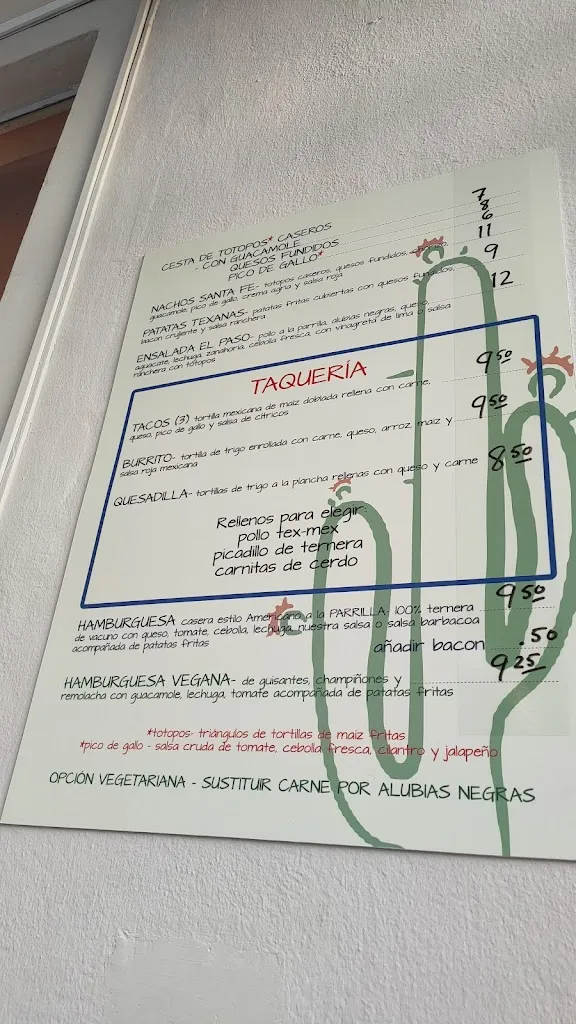 CESTA DE TOTOPOS* CASEROS 7
- CON GUACAMOLE 8
QUESOS FUNDIDOS 6
PICO DE GALLO*
NACHOS SANTA FE- totopos caseros, quesos fundidos, 11
guacamole, pico de gallo, crema agria y salsa roja
PATATAS TEXANAS- patatas fritas cubiertas con quesos fundidos, 9
bacon crujiente y salsa ranchera
ENSALADA EL PASO- pollo a la parrilla, alubias negras, queso, 12
aguacate, lechuga, zanahoria, cebolla fresca, con vinagreta de lima o salsa
ranchera con tótopos
TAQUERÍA
TACOS (3) tortilla mexicana de maiz doblada rellena con carne, 9 50
queso, pico de gallo y salsa de cítricos
BURRITO- tortilla de trigo enrollada con carne, queso, arroz, maiz y 9 50
salsa roja mexicana
QUESADILLA- tortillas de trigo a la plancha rellenas con queso y carne 8 50
Rellenos para elegir:
pollo tex-mex
picadillo de ternera
carnitas de cerdo
HAMBURGUESA casera estilo Americano a la PARRILLA- 100% ternera 9 50
de vacuno con queso, tomate, cebolla, lechuga, nuestra salsa o salsa barbacoa
acompañada de patatas fritas
añadir bacon .50
HAMBURGUESA VEGANA- de guisantes, champiñones y 9 25
remolacha con guacamole, lechuga, tomate acompañada de patatas fritas
*totopos- triángulos de tortillas de maiz fritas
*pico de gallo - salsa cruda de tomate, cebolla fresca, cilantro y jalapeño
OPCIÓN VEGETARIANA - SUSTITUIR CARNE POR ALUBIAS NEGRAS